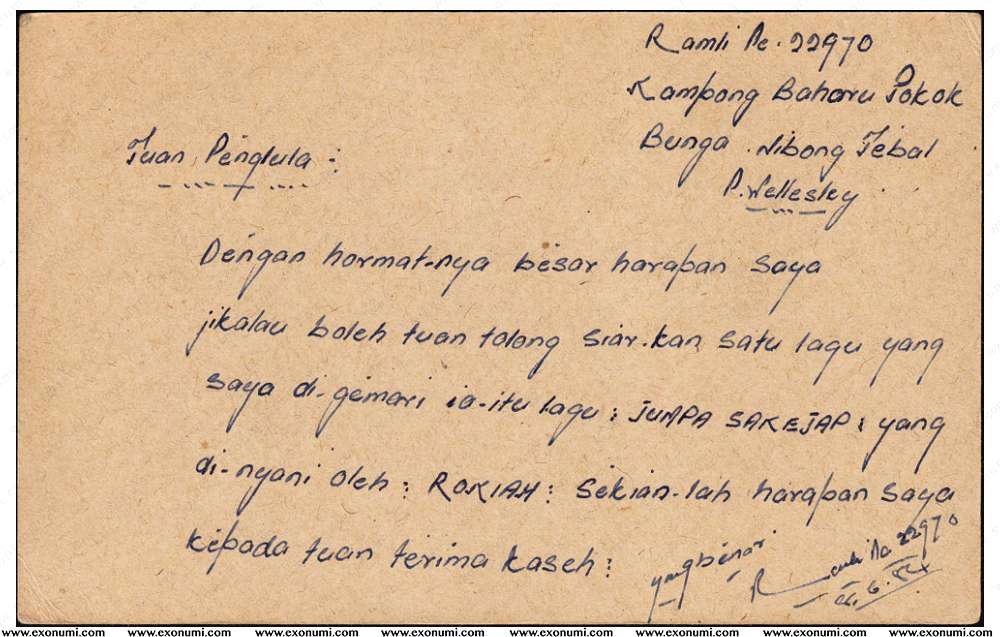 Ramli Pc. 22970
Kampong Baharu Pokok
Bunga. Nibong Tebal
P. Wellesley
Tuan Pengtula:
Dengan hormat-nya besar harapan saya
jikalau boleh tuan tolong siar-kan satu lagu yang
saya di-gemari ia-itu lagu: JUMPA SAKEJAP: yang
di-nyani oleh: ROKIAH: Sekian-lah harapan saya
kepada tuan terima kaseh:
yang benar.
22970
www.exonumi.com www.exonumi.com www.exonumi.com www.exonumi.com www.exonumi.com www.exonumi.com www.exonumi.com www.exonumi.com